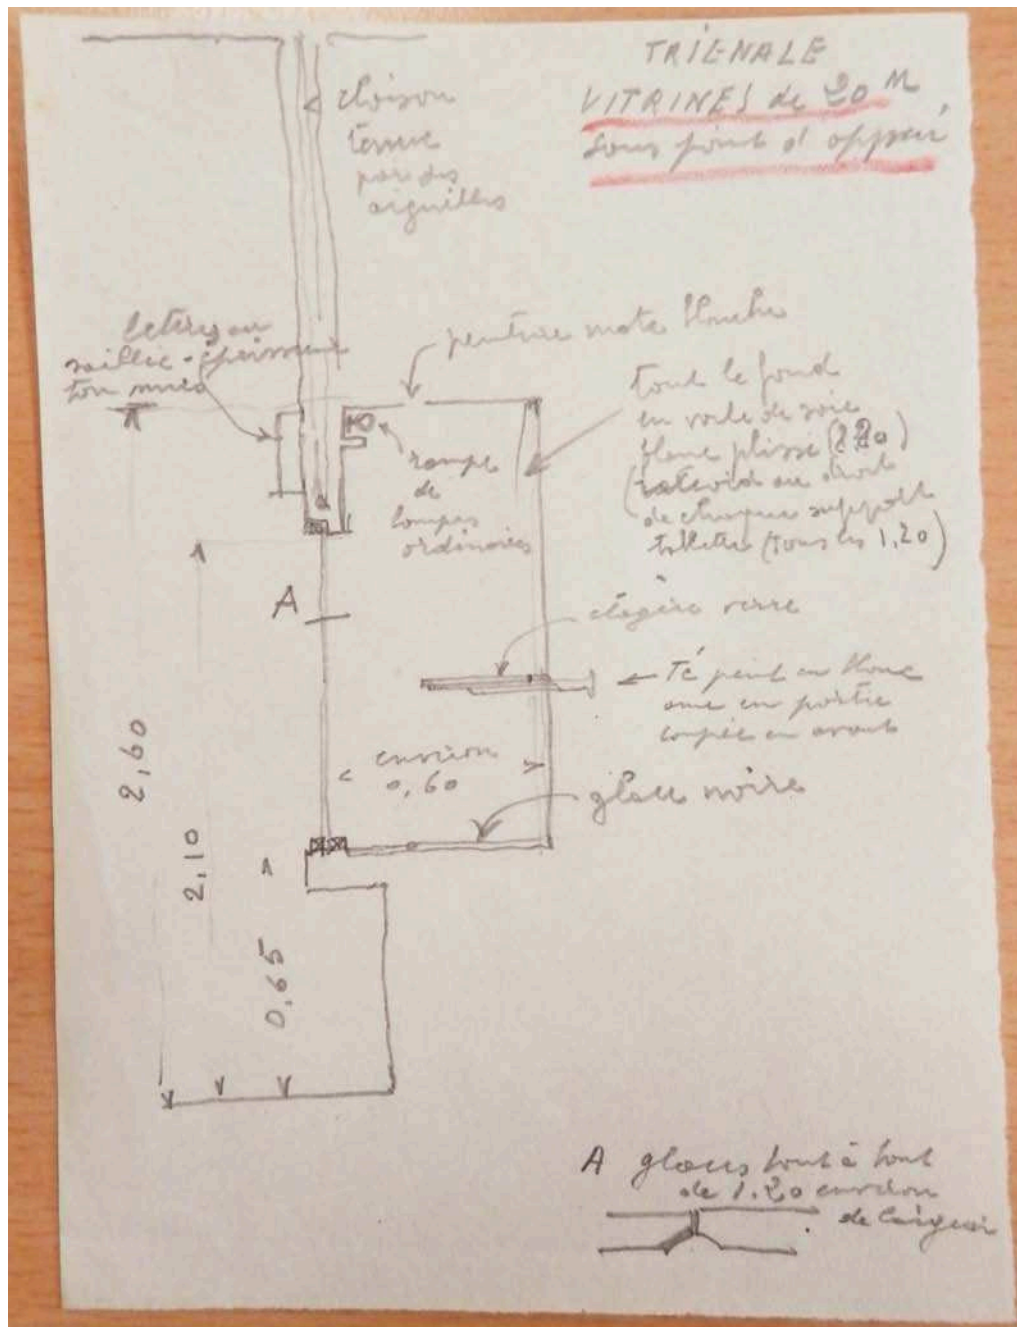 TRIENALE
VITRINES de 20 M
sans point d'appui
cloison
tenue
par des
aiguilles
lettres en
saillie - épaisseur
ton
peinture mate blanche
tout le fond
en voile de soie
blanc plissé (220)
au droit
de chaque support
tablette (tous les 1,20)
rampe
de
lampes
ordinaires
A
étagère verre
Té peint en blanc
ame en partie
coupée en avant
environ
0,60
glace noire
2,60
2,10
0,65
A glaces bout à bout
de 1.20 environ
de largeur